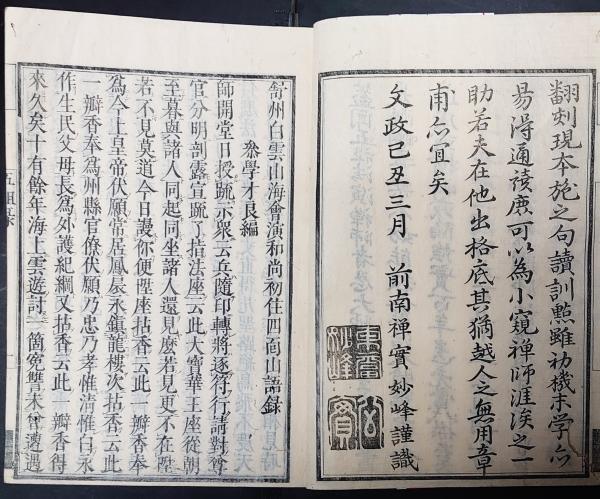 翻刻現本施之句讀訓㸃雖初機末学亦
易得通讀庶可以為小窺禅師涯涘之一
助若夫在他出格底其猶越人之無用章
甫亦宜矣
文政己丑三月　前南禅實妙峰謹識
妙峰
舒州白雲山海會演和尚初住四面山語録
叅學才良編
師開堂日授䟽示衆云兵隨印轉將逐符行請對尊
官分明剖露宣䟽了指法座云此大寶華王座從朝
至暮與諸人同起同坐諸人還見麽若見更不在陞
若不見莫道今日謾你便陞座拈香云此一瓣香奉
為今上皇帝伏願常居鳳扆永鎮龍樓次拈香云此
一瓣香奉爲州縣官僚伏願乃忠乃孝惟清惟白永
作生民父母長爲外護紀綱又拈香云此一瓣香得
來久矣十有餘年海上雲遊討一箇寃讐未曾遭遇